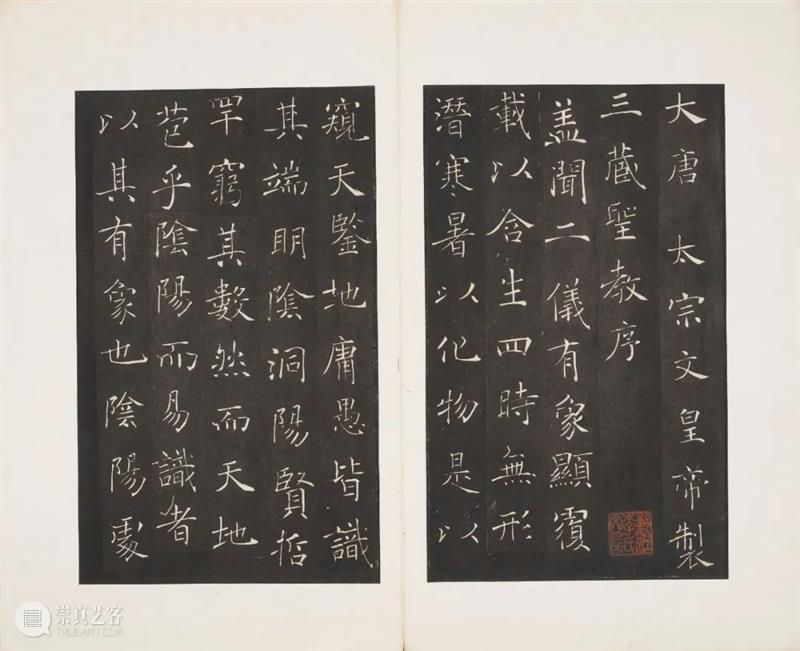 大唐太宗文皇帝製
三藏聖教序
盖聞二儀有象顯覆
載以含生四時無形
潛寒暑以化物是以
窺天鑒地庸愚皆識
其端明陰洞陽賢哲
罕窮其數然而天地
苞乎陰陽而易識者
以其有象也陰陽處
崇真艺客
TRUEART.COM